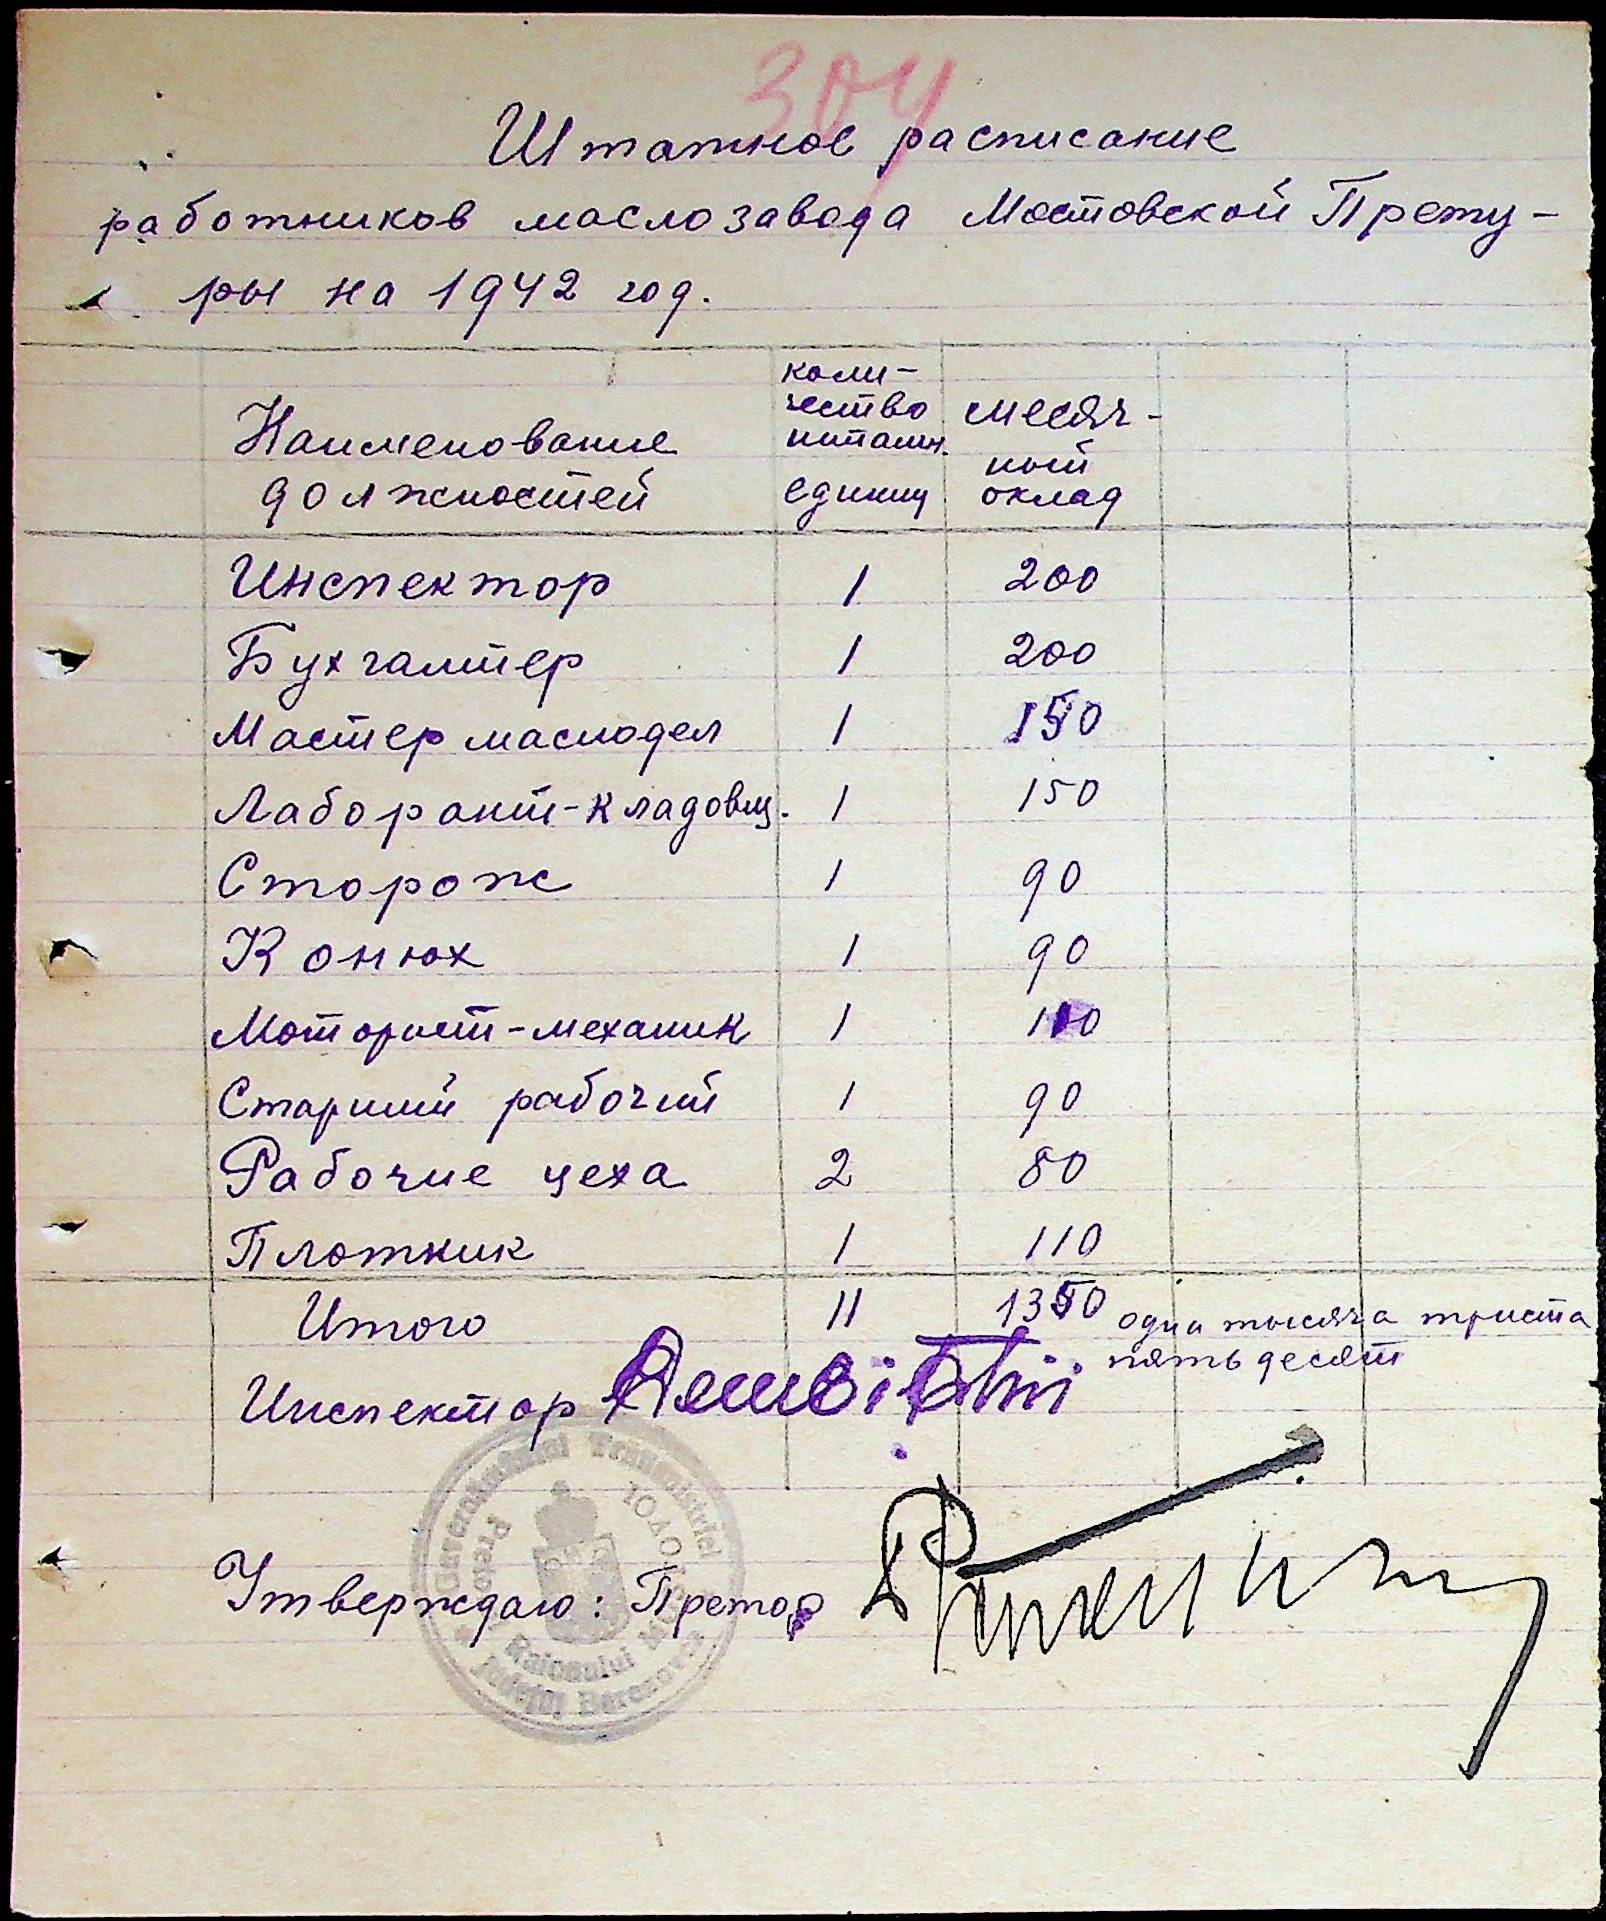 304
Штатное расписание
работников маслозавода Мостовской Прету-
ры на 1942 год.
Наименование должностей | коли-чество штатн. единиц | месяч-ный оклад
Инспектор 1 200
Бухгалтер 1 200
Мастер маслодел 1 150
Лаборант-кладовщ. 1 150
Сторож 1 90
Конюх 1 90
Моторист-механик 1 110
Старший рабочий 1 90
Рабочие цеха 2 80
Плотник 1 110
Итого 11 1350 одна тысяча триста
пятьдесят
Инспектор
Утверждаю: Претор
Guvernământul Transnistriei
Pretor
Raionului
Județul Berezovca